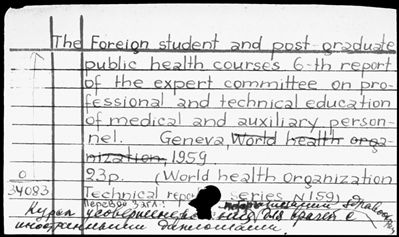 The Foreign student and post graduate
public health courses 6-th report
of the expert committee on pro-
fessional and technical education
of medical and auxiliary person-
nel. Geneva, World health orga-
nization, 1959
0 23p. (World health organization
34083 Technical repo series N159)
Перевод загл.:
Курсы усовершенс для врачей с
иностранными дипломами.